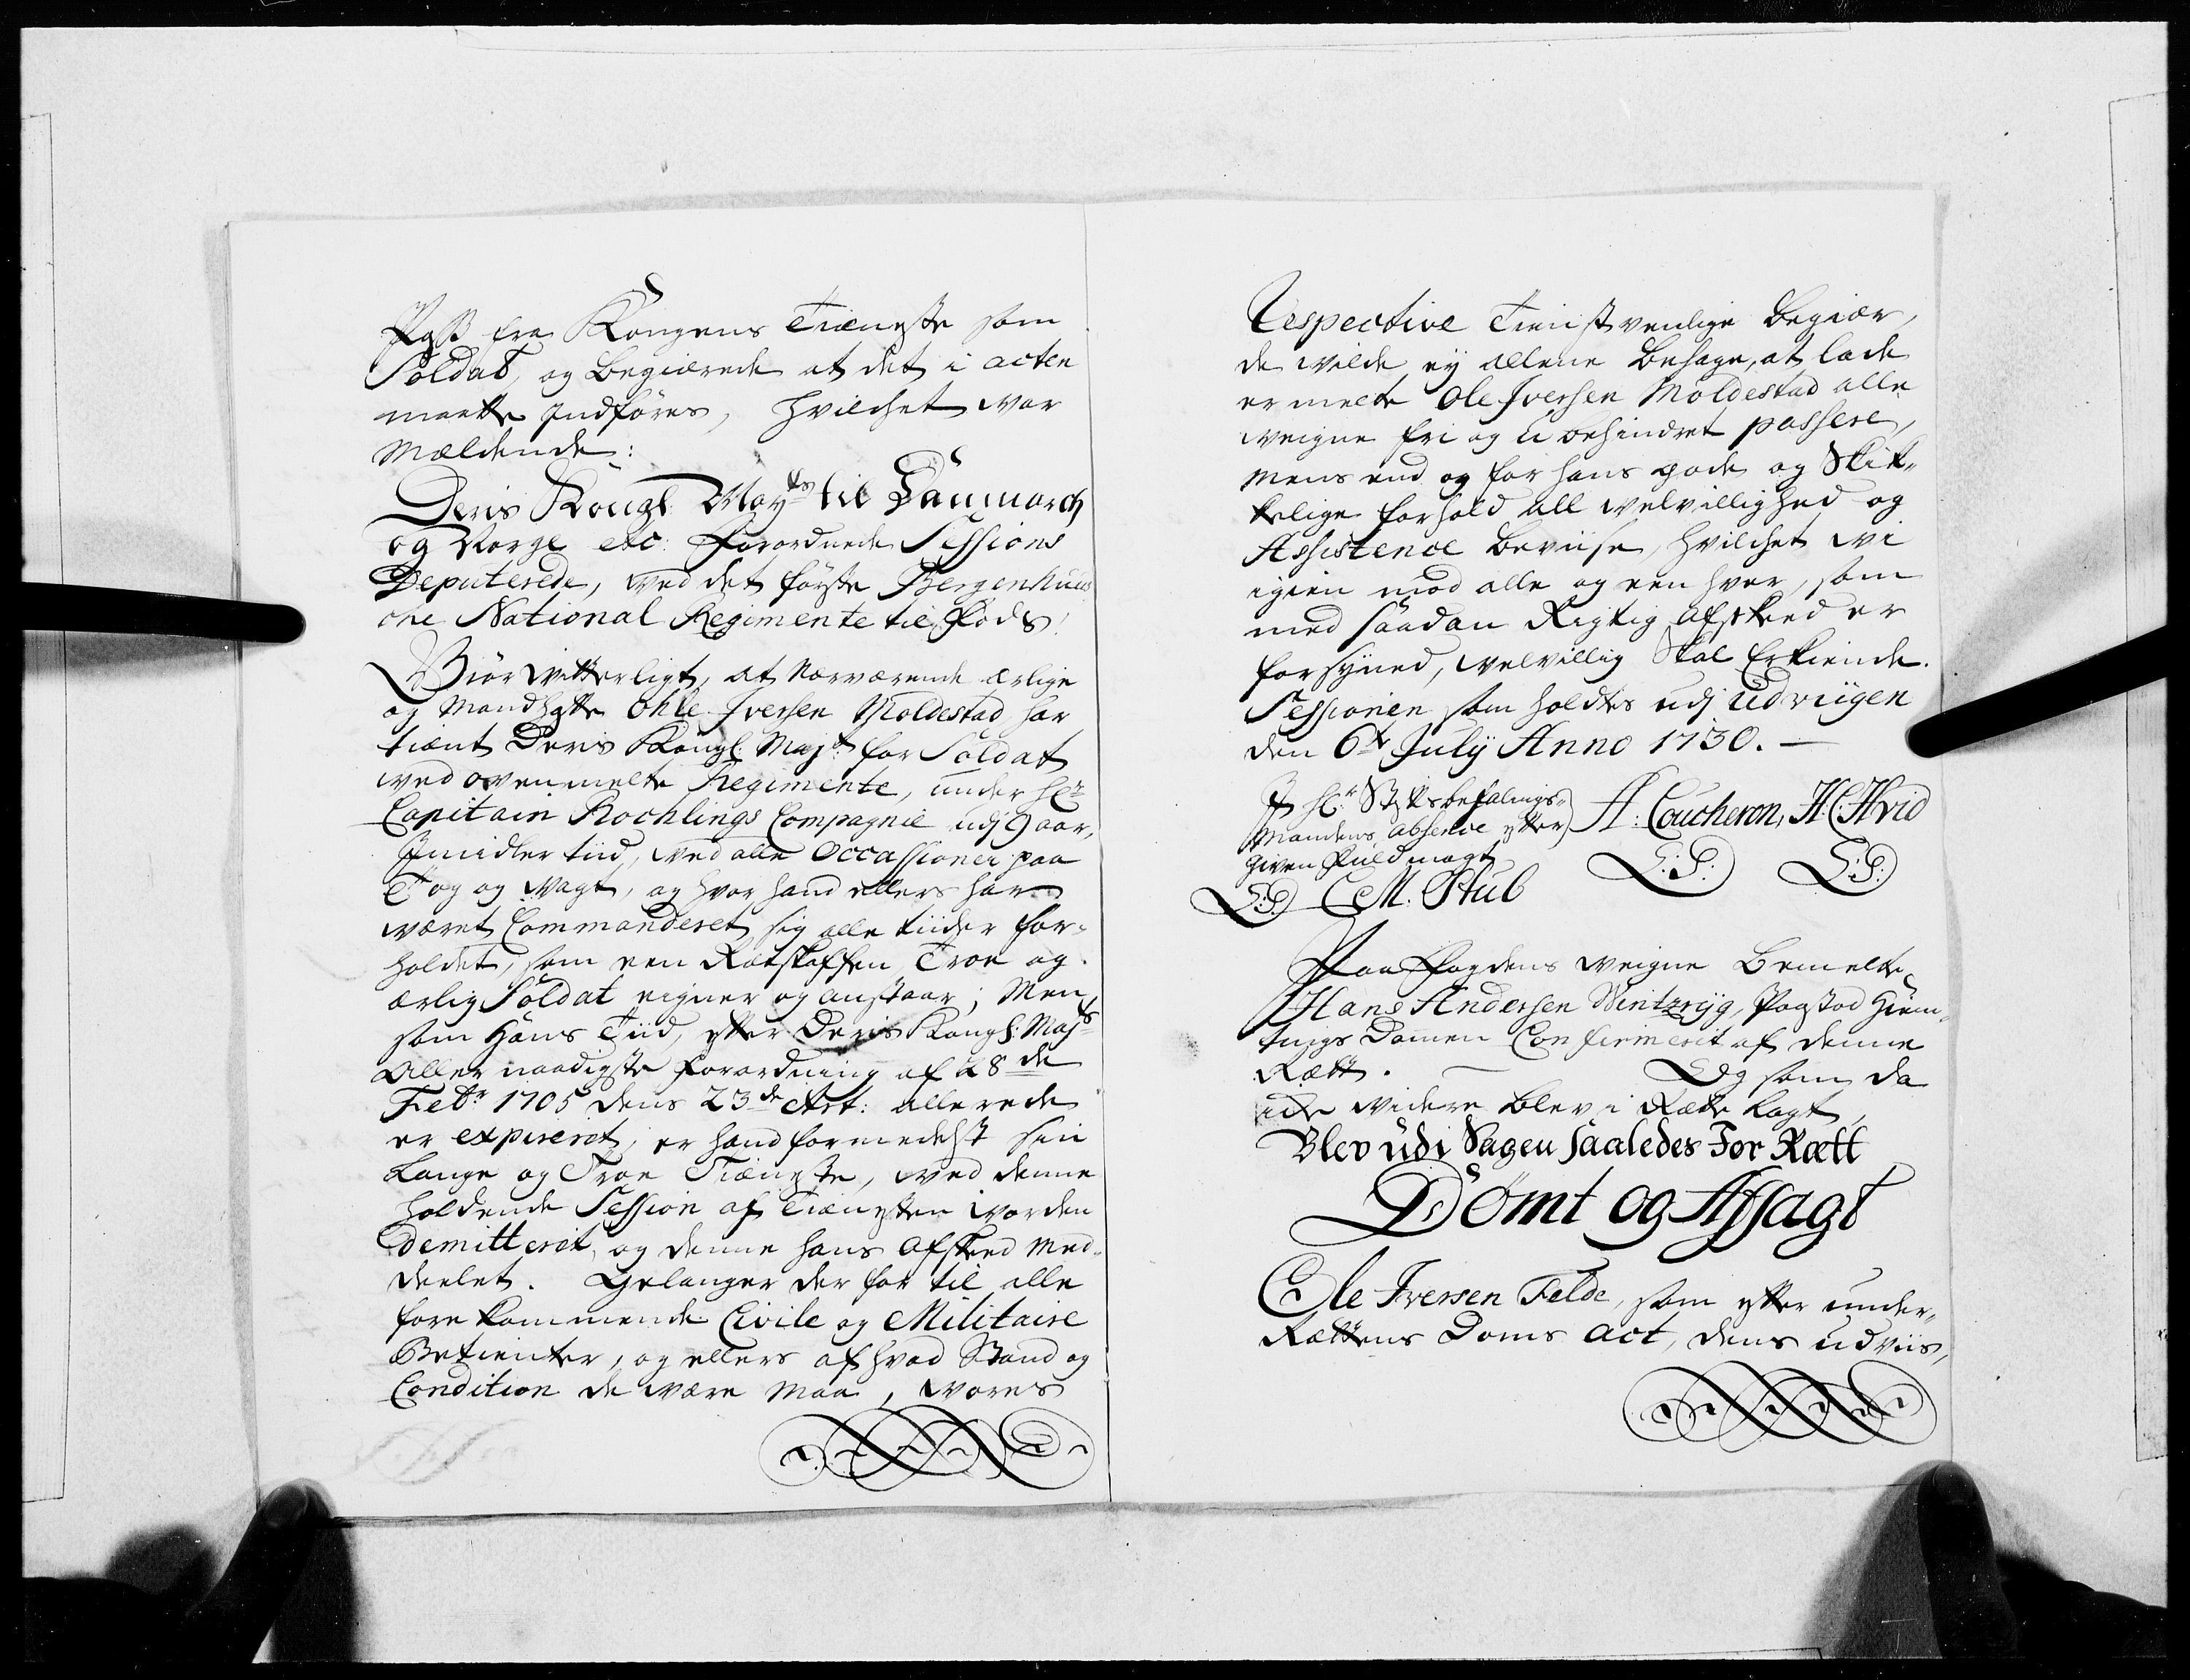 Pass fra Kongens Tieneste som
Soldat, og begiærede at det i acten
maatte Indføres, hvilchet var
Mældende:
Deris Kongl: May.ts til Danmarch
og Norge etc: Forordnede Sessions
Deputerede, ved det første Bergenhuus
che National Regimente til Fods!
Giør vitterligt, at Nærværende ærlige
og Mandhafte Ohle Iversen Moldestad har
tient Deris Kongl: Majt for Soldat
ved ovenmelte Regimente, under Hr
Capitain Rochlings Compagnie udj 9 aar,
Imidler tiid, ved alle Occassioner paa
Tog og Vagt, og hvor hand ellers har
været Commanderet, sig alle tiider for-
holdet, som een Retskaffen Troe og
ærlig Soldat eigner og anstaar; Men
som Hans Tiid, efter Deris Kongl: Majts
Aller naadigste Forordning af 28de
Febr 1705 dens 23de Art: allerede
er expireret, er hand formedelst sin
Lange og Troe Tieneste, ved denne
holdende Session af Tienesten worden
demitteret, og denne hans Afskeed Med-
deelet. Gelanger der for til alle
forekommende Civile og Militaire
Betienter, og ellers af hvad Stand og
Condition de være Maa, Vores
Respective Tienstvenlige begiær,
de wilde ej allene behage, at lade
ermelte Ole Iversen Moldestad alle
weigne fri og ubehindret passere,
Mens end og for hans gode og Skik-
kelige forhold all velvillighed og
Assistence beviise, hvilchet vi
igien mod alle og een hver, som
med saadan Rigtig afskeed er
forsyned, velvillig Skal Erkiende.
Sessionen som holdtes udj Udviigen
den 6te Julij Anno 1730. —
I Hr. Stiftsbefalings-
Mandens absence efter
given Fuldmagt
A: Coucheron, H. C. Hvid
L:S: L:S:
L:S. C M. Stub
Paa Fogdens Weigne bemelte
Hans Andersen Wintzrijg, Paastod Hiem-
tings Domen Confirmerit af denne
Rætt. — Og som da
icke videre blev i Rette lagt,
Blev udi Sagen saaledes For Rætt
Dømt og Afsagt
Ole Iversen Felde, som efter under-
Rættens Doms Act, dens udviis,